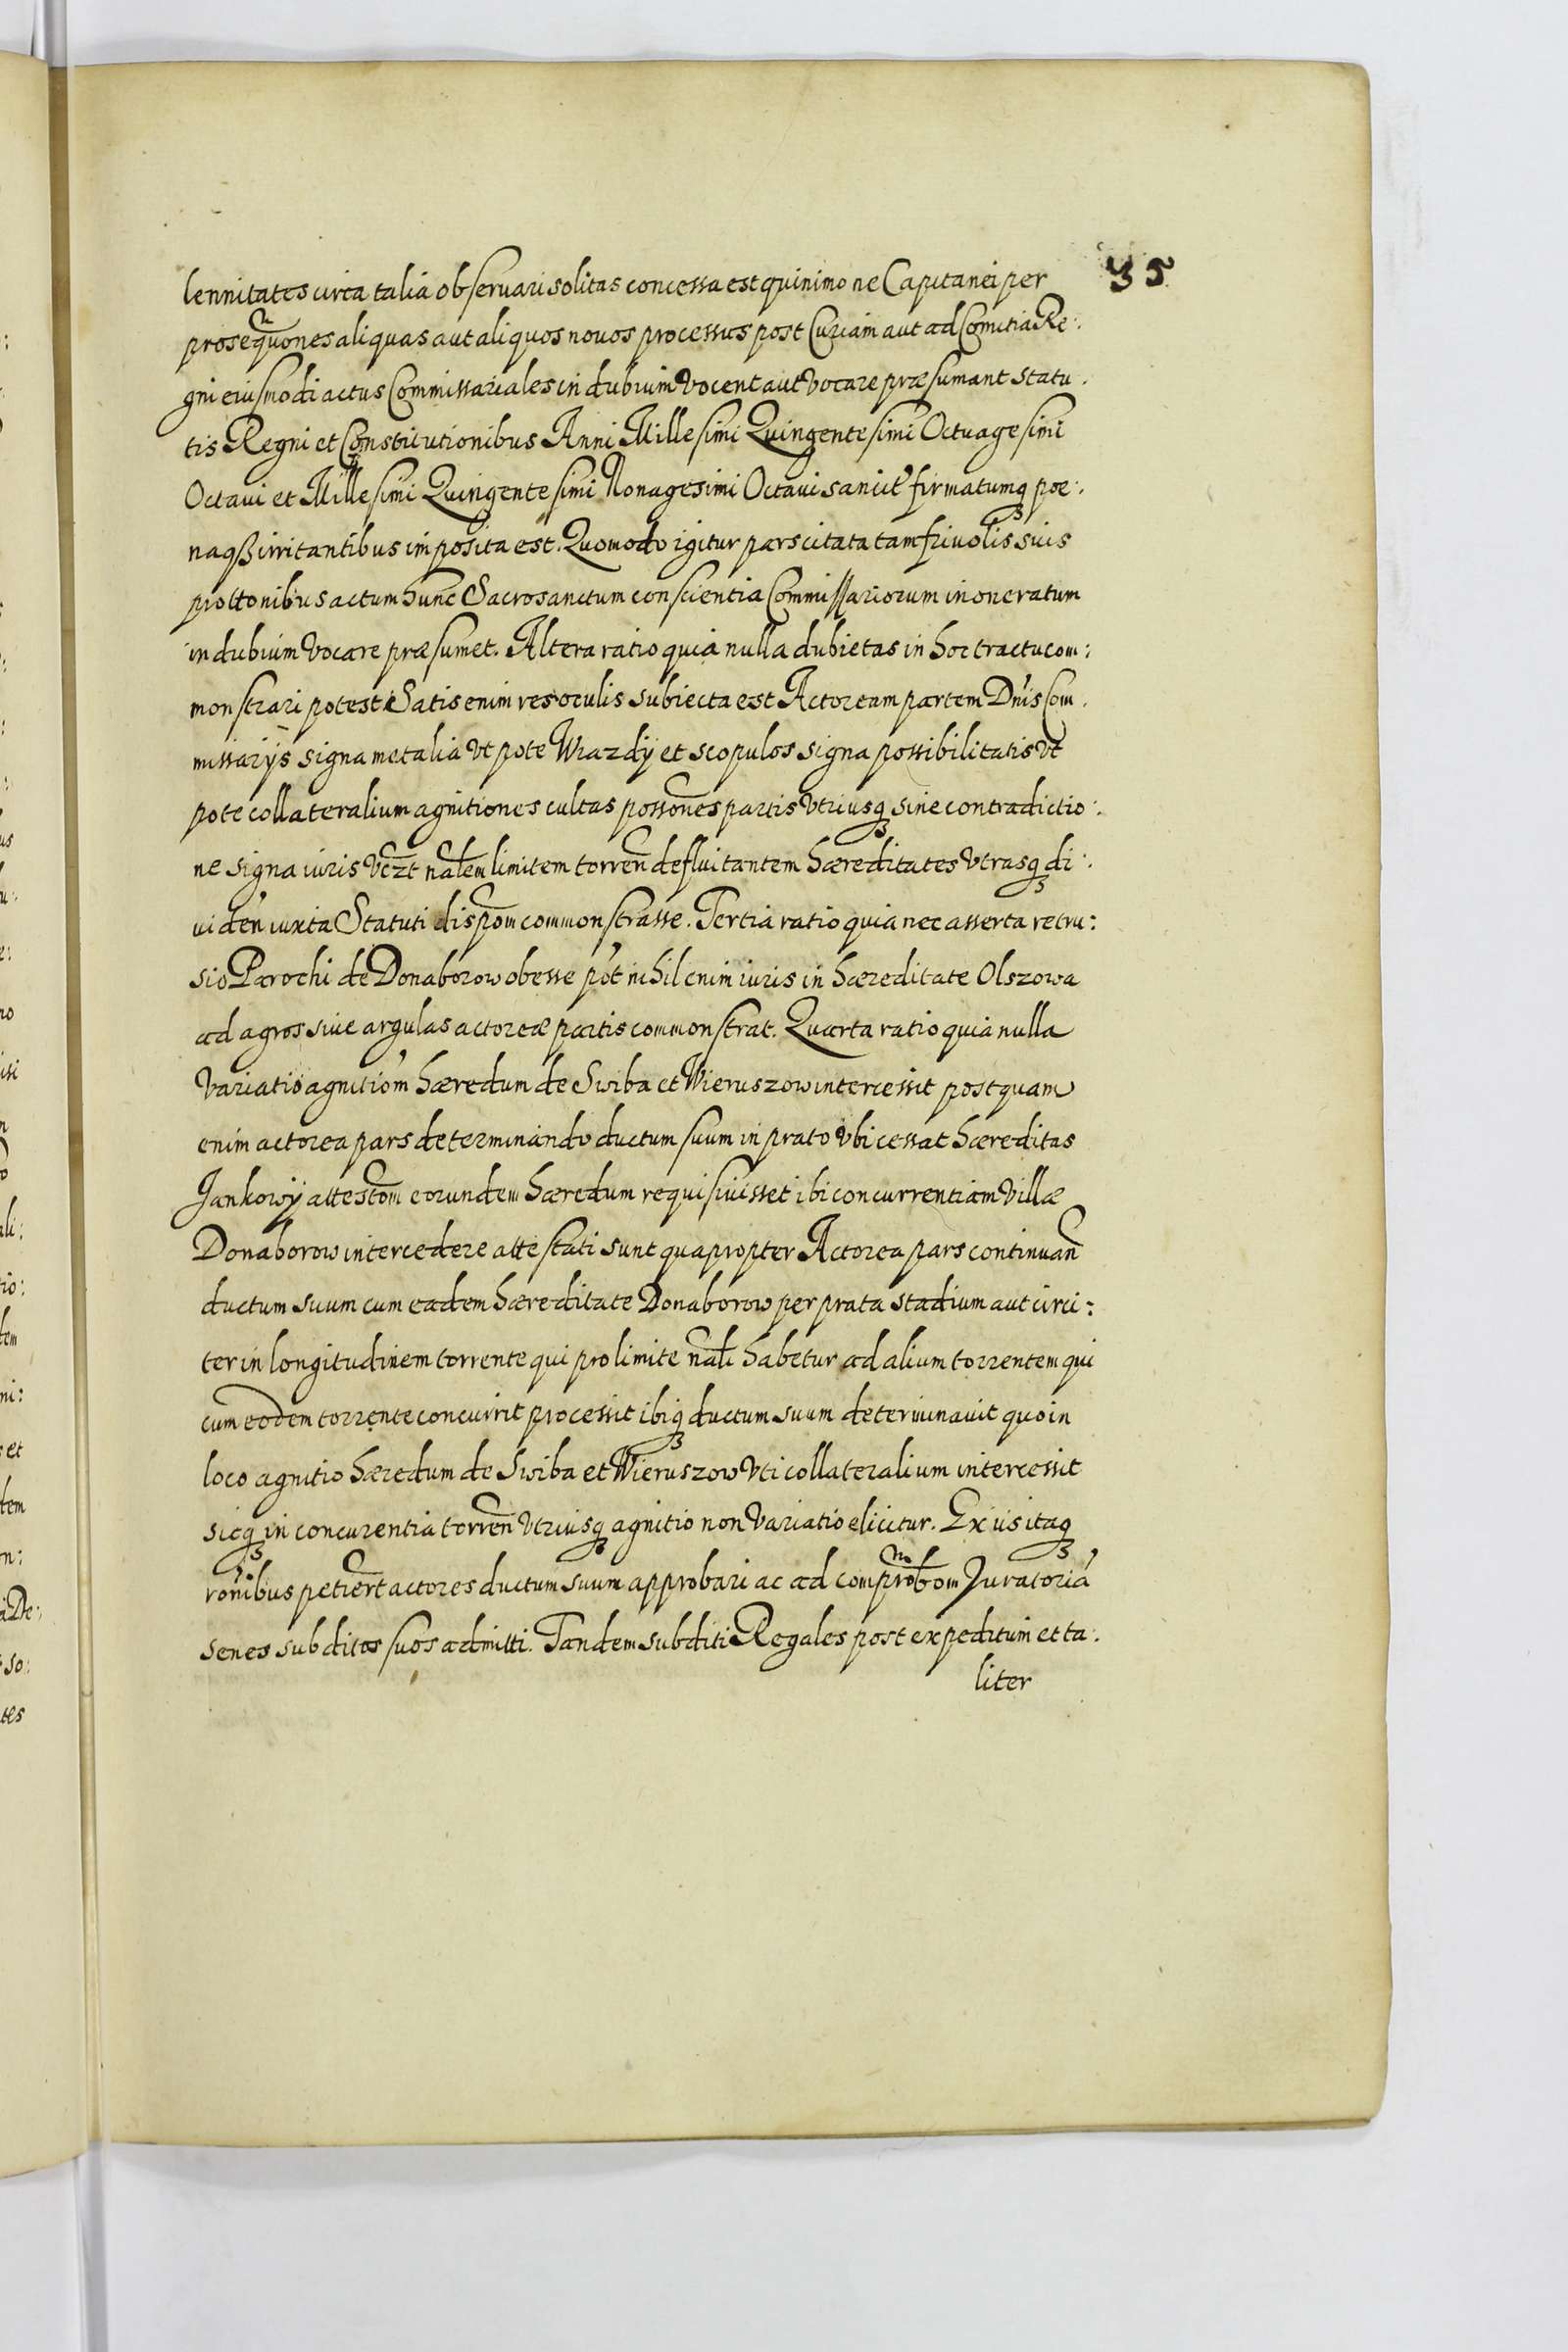 35
lennitates circa talia observari solitas concessa est quinimo ne Capitanei per
prosequõnes aliquas aut aliquos novos processus post Curiam aut ad Comitia Re:
gni eiusmodi actus Commissariales in dubium vocent aut vocare præsumant statu:
tis Regni et Constitutionibus Anni Millesimi Quingentesimi Octuagesimi
Octavi et Millesimi Quingentesimi Nonagesimi Octavi sancit' firmatumq poe:
naqß irritantibus imposita est. Quomodo igitur pars citata tam frivolis suis
prolt̃onibus actum hunc Sacrosanctum conscientia Commissariorum inoneratum
in dubium vocare præsumet. Altera ratio quia nulla dubietas in hoc tractu com:
monstrari potest Satis enim res oculis subiecta est Actoream partem Dnis Com:
missarijs signa metalia ut pote Wiazdy et scopulos signa possibilitatis ut
pote collateralium agnitiones cultas possõnes partis utriusq sine contradictio:
ne signa iuris vczt nãlem limitem torreñ defluitantem hæreditates utrasq di:
viden̄ iuxta Statuti dispõm commonstrasse. Tertia ratio quia nec asserta retru:
sio Parochi de Donaborow obesse pot' nihil enim iuris in hæreditate Olszowa
ad agros sive argulas actoreæ partis commonstrat. Quarta ratio quia nulla
variatio agnitiom̄ hæredum de Swiba et Wieruszow intercessit postquam
enim actorea pars determinando ductum suum in prato ubi cessat hæreditas
Jankowy attestõm eorundem hæredum requisivisset ibi concurrentiam villæ
Donaborow intercedere attestati sunt quapropter Actorea pars continuan̄
ductum suum cum eadem hæreditate Donaborow per prata stadium aut circi:
ter in longitudinem torrente qui pro limite nãli habetur ad alium torrentem qui
cum eodem torrente concurrit processit ibiq ductum suum determinavit quo in
loco agnitio hæredum de Swiba et Wieruszow uti collateralium intercessit
sicq in concurentia torreñ utriusq agnitio non variatio elicitur. Ex iis itaq
roñibus petiert actores ductum suum approbari ac ad comprobõm Juratoriā
senes subditos suos admitti. Tandem subditi Regales post expeditum et ta:
liter